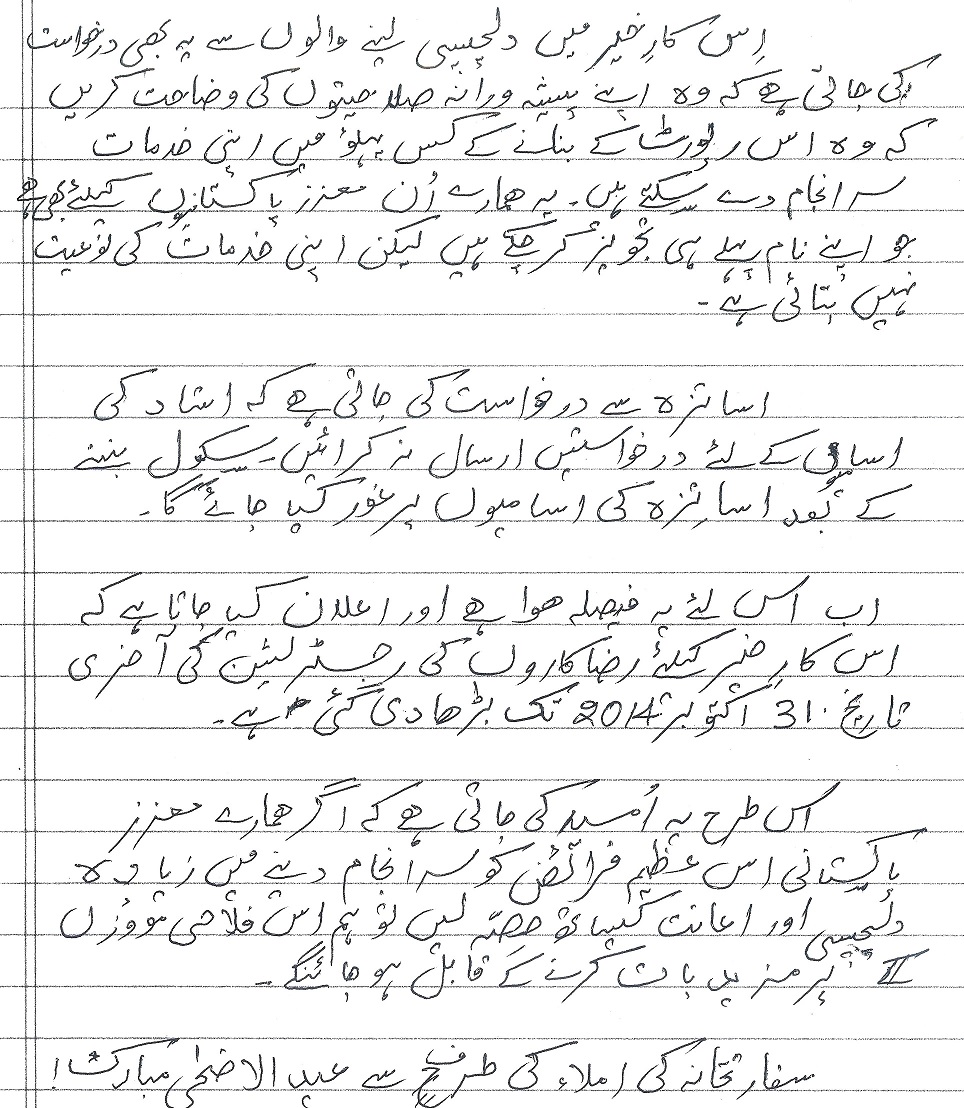 اِس کارِ خیر میں دلچسپی لینے والوں سے یہ بھی درخواست
کی جاتی ہے کہ وہ اپنے پیشہ ورانہ صلاحیتوں کی وضاحت کریں
کہ وہ اس رپورٹ کے بنانے کے کس پہلؤ میں اپنی خدمات
سرانجام دے سکتے ہیں۔ یہ ھمارے اُن معزز پاکستانیوں کیلئے بھی ہے
جو اپنے نام پہلے ہی تجویز کر چکے ہیں لیکن اپنی خدمات کی نوعیت
نہیں بتائی ہے۔
اساتزہ سے درخواست کی جاتی ہے کہ استاد کی
اسامی کے لئے درخواستیں ارسال نہ کرائیں۔ سکول بننے
کے بعد اساتزہ کی اسامیوں پر غور کیا جائے گا۔
اب اس لئے یہ فیصلہ ھوا ہے اور اعلان کیا جاتا ہے کہ
اس کارِ خیر کیلئے رضاکاروں کی رجسٹرلیشن کی آخری
تاریخ 31 اکتوبر 2014 تک بڑھا دی گئی ہے۔
اس طرح یہ اُمید کی جاتی ہے کہ اگر ھمارے معزز
پاکستانی اس عظیم فرائض کو سرانجام دینے میں زیادہ
دلچسپی اور اعانت کیساتھ حصّہ لیں تو ہم اس فلاحی
کے پر مزید بات کرنے کے قابل ہو جائنگے۔
سفارتخانہ کی املاء کی طرف سے عید الاضحٰی مبارک!